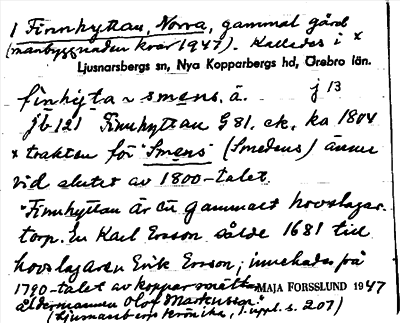 1 Finnhyttan, Norra, gammal gård
(manbyggnaden kvar 1947). Kallades i x
Ljusnarsbergs sn, Nya Kopparbergs hd, Örebro län.
finhyta ~ smens. å. j 13
jb 121 Finnhyttan G 81. ek. ka 1804
x trakten för "Smens" (Smedens) ännu
vid slutet av 1800-talet.
"Finnhyttan är en gammal hovslagar-
torp. En Karl Ersson sålde 1681 till
hovslagaren Erik Ersson; innehades på
1790-talet av kopparsmeds-
MAJA FORSSLUND 1947
åldermannen Olof Markusson."
(Ljusnarsbergs krönika, 1. uppl. s. 207)